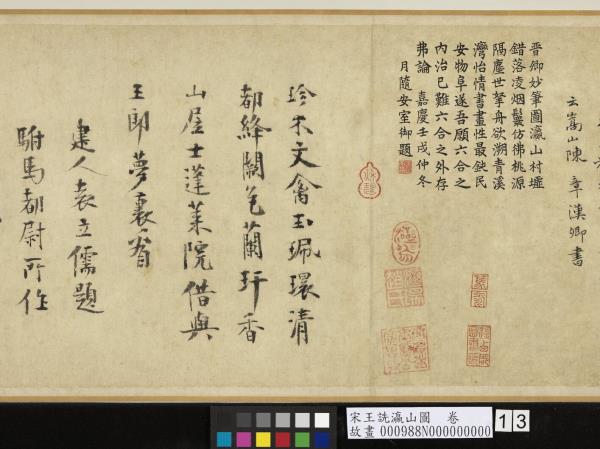 云嵩山陳章漢卿書
晉卿妙筆圖瀛山村墟
錯落凌烟鬟仿佛桃源
隔塵世拏舟欲溯青溪
灣怡情書畫性最
民
安物阜遂吾願六合之
內治已難六合之外存
弗論 嘉慶壬戌仲冬
月隨安室御題
珍木文禽玉珮環清
都絳闕
蘭玕香
山居士蓬萊院借與
王郎夢裏看
建人袁立儒題
駙馬都尉所作
宋王詵瀛山圖 卷
故畫 000988N000000000
13